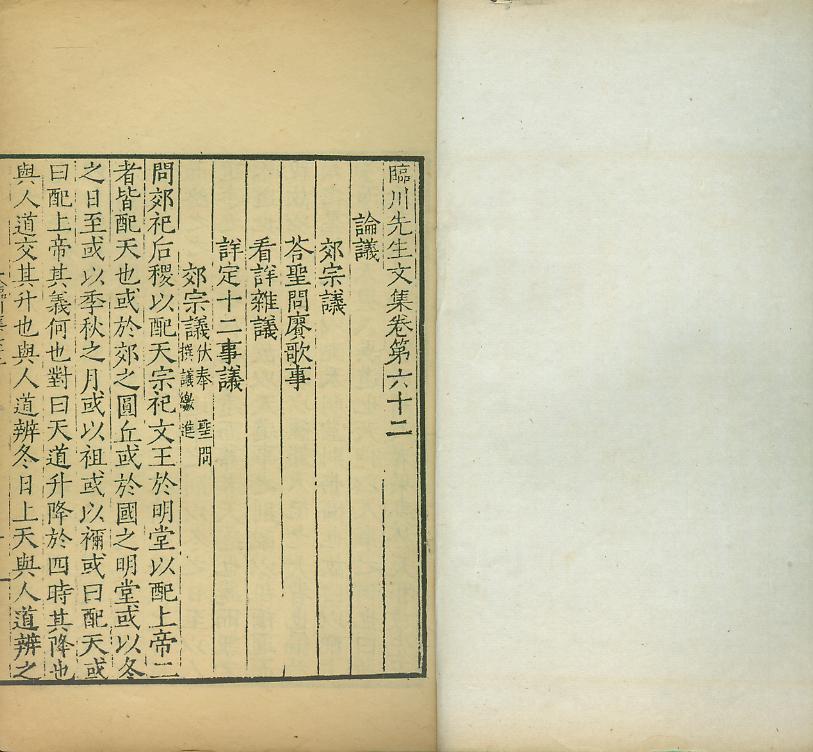 臨川先生文集卷第六十二
論議
郊宗議
荅聖問賡歌事
看詳雜議
詳定十二事議
郊宗議 伏奉 聖問
撰議繳進
問郊祀后稷以配天宗祀文王於明堂以配上帝二
者皆配天也或於郊之圓丘或於國之明堂或以冬
之日至或以季秋之月或以祖或以禰或曰配天或
曰配上帝其義何也對曰天道升降於四時其降也
與人道交其升也與人道辨冬日上天與人道辨之